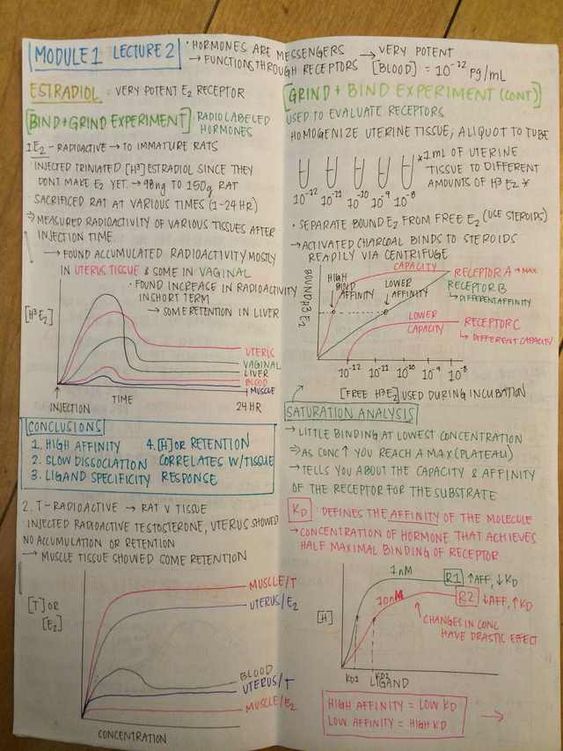 MODULE 1 LECTURE 2
· HORMONES ARE MESSENGERS → VERY POTENT
→ FUNCTIONS THROUGH RECEPTORS [BLOOD] = 10⁻¹² pg/mL
ESTRADIOL : VERY POTENT E₂ RECEPTOR
[BIND+GRIND EXPERIMENT] RADIOLABELED
HORMONES
1. E₂ - RADIOACTIVE → TO IMMATURE RATS
· INJECTED TRINIATED [H³] ESTRADIOL SINCE THEY
DONT MAKE E₂ YET. → 98ng TO 150g RAT
· SACRIFICED RAT AT VARIOUS TIMES (1-24 HR)
→ MEASURED RADIOACTIVITY OF VARIOUS TISSUES AFTER
INJECTION TIME
→ FOUND ACCUMULATED RADIOACTIVITY MOSTLY
IN UTERUS TISSUE & SOME IN VAGINAL
· FOUND INCREASE IN RADIOACTIVITY
IN SHORT TERM
→ SOME RETENTION IN LIVER
[H³E₂]
UTERUS
VAGINAL
LIVER
BLOOD
MUSCLE
↑ INJECTION TIME 24 HR
CONCLUSIONS
1. HIGH AFFINITY 4. [H] OR RETENTION
2. SLOW DISSOCIATION CORRELATES W/TISSUE
3. LIGAND SPECIFICITY RESPONSE
2. T-RADIOACTIVE → RAT V TISSUE
INJECTED RADIOACTIVE TESTOSTERONE, UTERUS SHOWED
NO ACCUMULATION OR RETENTION
→ MUSCLE TISSUE SHOWED SOME RETENTION
[T] OR
[E₂]
MUSCLE/T
UTERUS/E₂
BLOOD
UTERUS/T
MUSCLE/E₂
CONCENTRATION
[GRIND + BIND EXPERIMENT (CONT)]
USED TO EVALUATE RECEPTORS
HOMOGENIZE UTERINE TISSUE, ALIQUOT TO TUBE
*1mL OF UTERINE
TISSUE TO DIFFERENT
AMOUNTS OF H³ E₂ *
10⁻¹² 10⁻¹¹ 10⁻¹⁰ 10⁻⁹ 10⁻⁸
· SEPARATE BOUND E₂ FROM FREE E₂ (USE STEROIDS)
→ ACTIVATED CHARCOAL BINDS TO STEROIDS
READILY VIA CENTRIFUGE
BOUND H3 E₂
CAPACITY
HIGH
BIND
AFFINITY
LOWER
AFFINITY
RECEPTOR A → MAX
RECEPTOR B
↳ DIFFERENT AFFINITY
LOWER
CAPACITY
RECEPTOR C
↳ DIFFERENT CAPACITY
10⁻¹² 10⁻¹¹ 10⁻¹⁰ 10⁻⁹ 10⁻⁸
[FREE H³E₂] USED DURING INCUBATION
SATURATION ANALYSIS
→ LITTLE BINDING AT LOWEST CONCENTRATION
→ AS CONC ↑ YOU REACH A MAX (PLATEAU)
→ TELLS YOU ABOUT THE CAPACITY & AFFINITY
OF THE RECEPTOR FOR THE SUBSTRATE
KD : DEFINES THE AFFINITY OF THE MOLECULE
→ CONCENTRATION OF HORMONE THAT ACHIEVES
HALF MAXIMAL BINDING OF RECEPTOR
[H]
1nM
R1 ↑ AFF, ↓ KD
10nM
R2 ↓ AFF, ↑ KD
CHANGES IN CONC
HAVE DRASTIC EFFECT
KD1 KD2
LIGAND
HIGH AFFINITY = LOW KD
LOW AFFINITY = HIGH KD
→